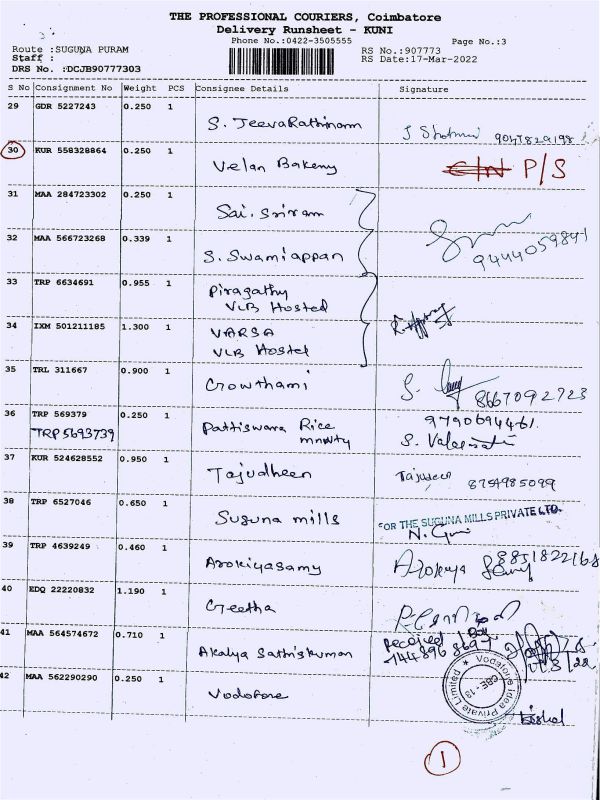 THE PROFESSIONAL COURIERS, Coimbatore
Delivery Runsheet - KUNI
Phone No.:0422-3505555
Page No.:3
Route :SUGUNA PURAM
RS No.:907773
Staff :
RS Date:17-Mar-2022
DRS No. :DCJB90777303
S No Consignment No Weight PCS Consignee Details Signature
29 GDR 5227243 0.250 1 S. JeevaRathinam
30 KUR 558328864 0.250 1 Velan Bakery C/N P/S
31 MAA 284723302 0.250 1 Sai. Sriram
32 MAA 566723268 0.339 1 S. Swamiappan 9444059841
33 TRP 6634691 0.955 1 Piragathy
VLB Hosted
34 IXM 501211185 1.300 1 VARSA
VLB Hostel
35 TRL 311667 0.900 1 Gowthami 8667092723
36 TRP 569379 0.250 1 Pattiswara Rice 9790694461
TRP 5693739
37 KUR 524628552 0.950 1 Tajudheen 8754985099
38 TRP 6527046 0.650 1 Suguna mills
FOR THE SUGUNA MILLS PRIVATE LTD.
39 TRP 4639249 0.460 1 Arokiyasamy 8851822168
40 EDQ 22220832 1.190 1 Geetha
41 MAA 564574672 0.710 1 Akalya Sathiskumar Received
42 MAA 562290290 0.250 1 Vodofone
Vodafone Idea Private Limited
CBE - 18
1